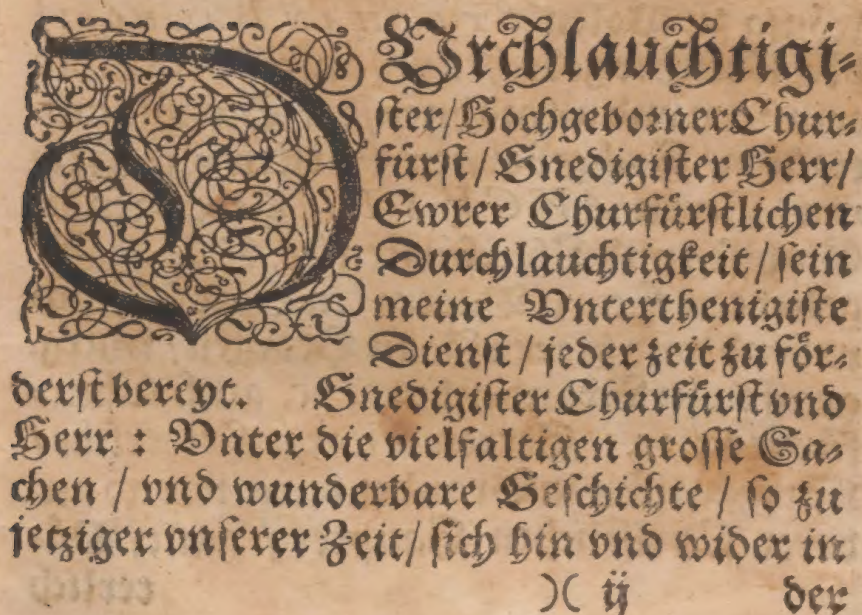 DVrchlauchtigi⸗
ster/HochgebornerChur⸗
fürst/Gnedigister Herr/
Ewrer Churfürstlichen
Durchlauchtigkeit/sein
meine Vnterthenigiste
Dienst/jeder zeit zu för⸗
derst bereyt. Gnedigister Churfürst vnd
Herr : Vnter die vielfaltigen grosse Sa⸗
chen / vnd wunderbare Geschichte / so zu
jetziger vnserer Zeit/ sich hin vnd wider in
)( ij der